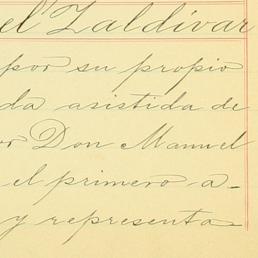 el Zaldívar
por su propio
da asistida de
or Don Manuel
el primero a-
y representa